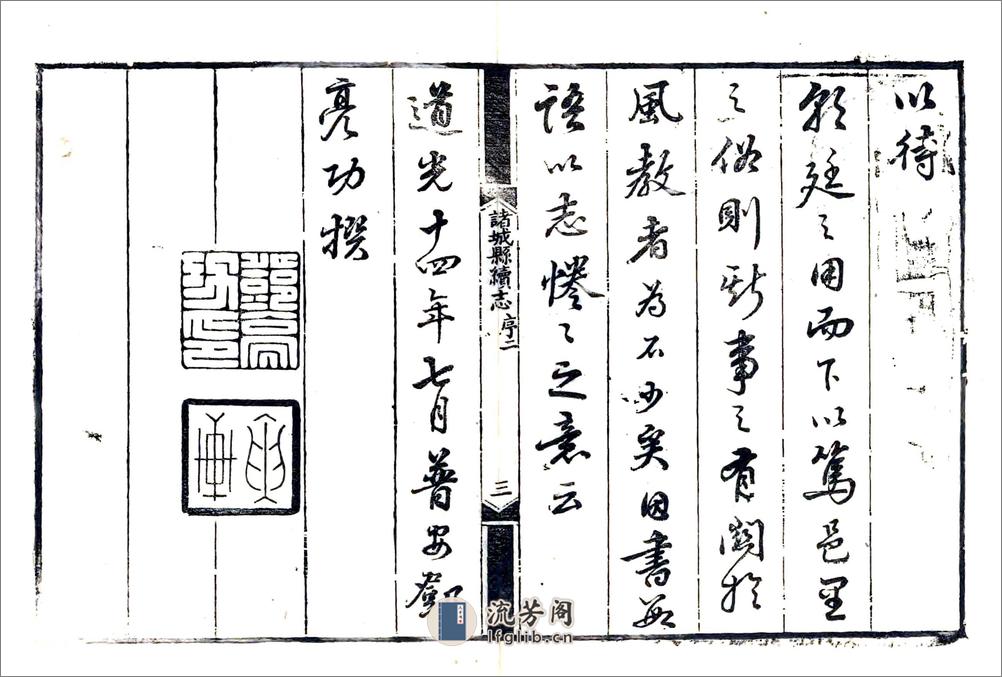 以待
朝廷之用而下以篤邑里
之俗則斯事之有關於
風教者為不少矣因書數
語以志惓之之意云
諸城縣續志 序二
三
道光十四年七月普安劉
亮功撰
流芳阁
lfglib.cn